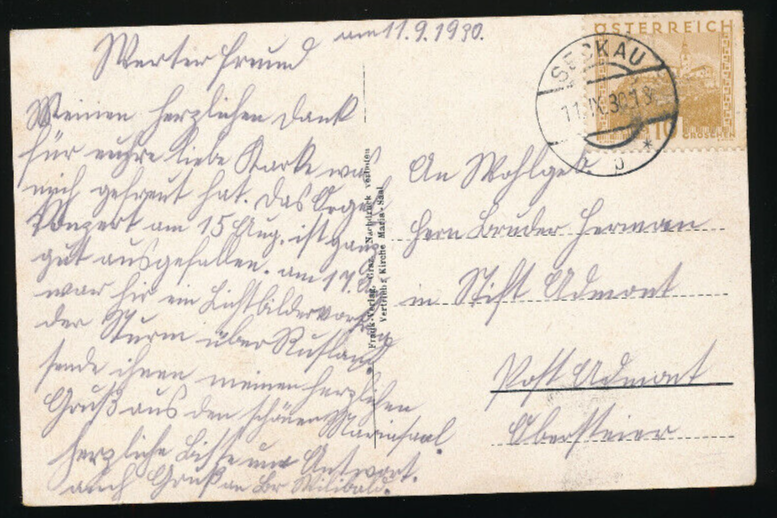 am 11.9.1930.
Werter Freund
Meinen herzlichen Dank
für euhre liebe Karte was
mich gefreut hat. Das Orgel
Konzert am 15 Aug. ist ganz
gut ausgefallen. am 17.
war hir ein Lichtbildervortrag
der Sturm über Rußland
sende ihnen meinen herzlichen
Gruß aus den schönen Mariasaal
herzliche Bitte um Antwort.
auch Gruß an Br Wilibald.
Frank-Verlag, Graz. Nachdruck verboten
Vertrieb: Kirche Maria-Saal
ÖSTERREICH
10
GROSCHEN
SECKAU
11.IX.30
b *
An Wohlgeb.
Hern Bruder Herman
in Stift Admont
Post Admont
Obersteier